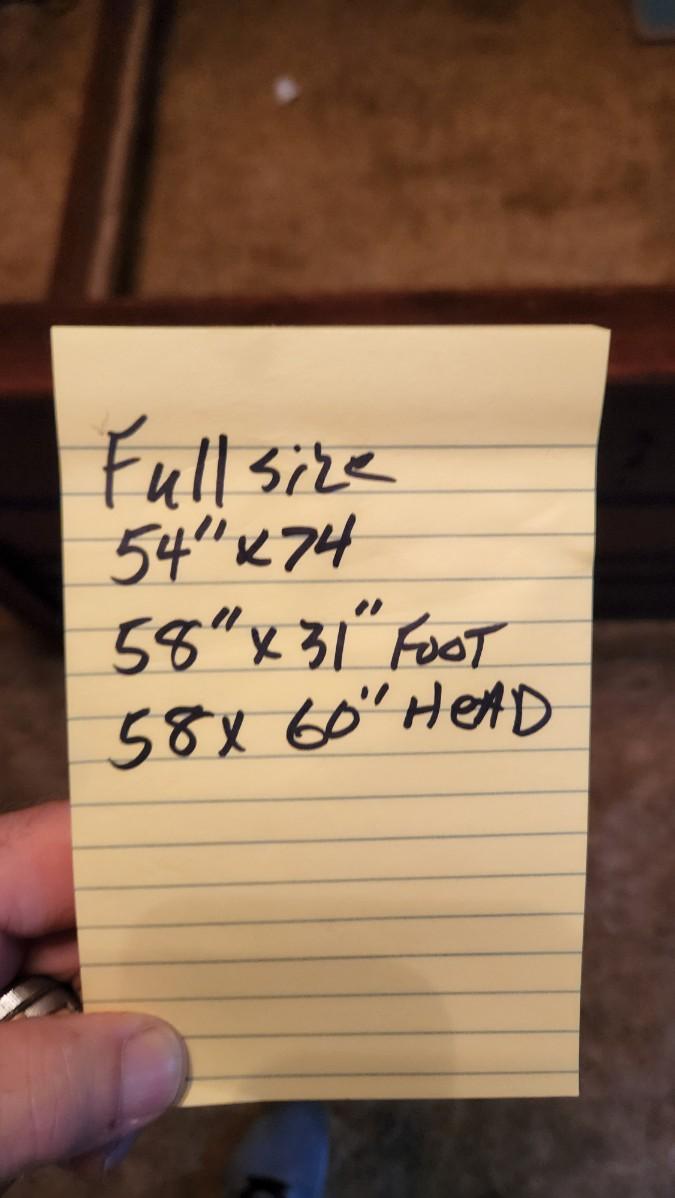 Full size
54" x 74
58" x 31" FOOT
58 x 60" HEAD